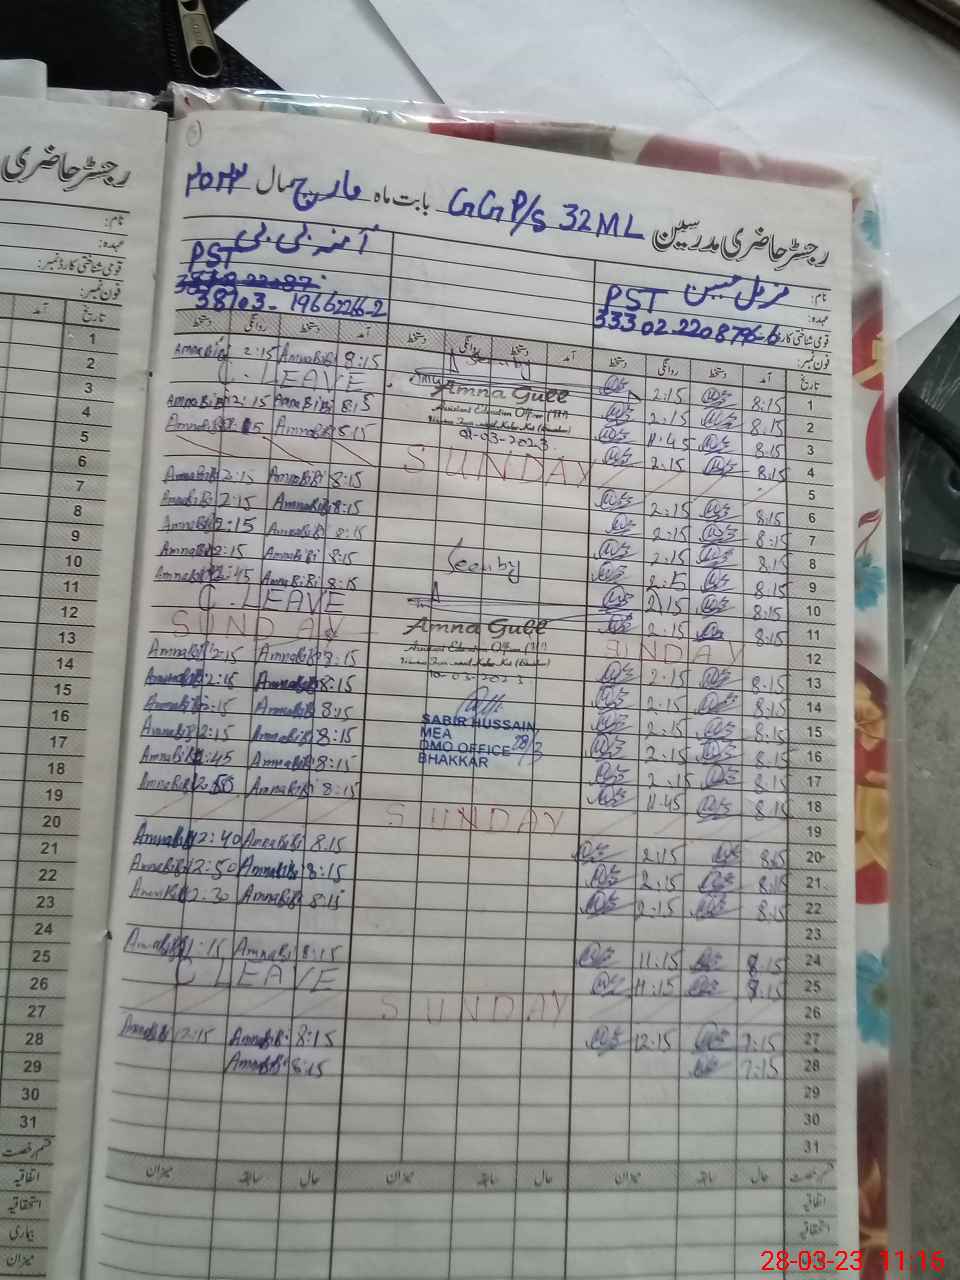 رجسٹر حاضری مدرسین GGP/S 32 ML بابت ماہ مارچ سال ۲۰۲۳
رجسٹر حاضری
نام: مزمل حسین
آمنہ بی بی
عہدہ: PST
PST
قومی شناختی کارڈ نمبر: 33302-2208796-6
38103-1966226-2
فون نمبر:
نام:
عہدہ:
قومی شناختی کارڈ نمبر:
فون نمبر:
تاریخ آمد دستخط روانگی دستخط آمد دستخط روانگی دستخط آمد دستخط روانگی دستخط
تاریخ آمد
1 8:15 2:15 8:15 Amna BiBi 2:15 Amna BiBi
Seen by
2 8:15 2:15 C. LEAVE
Amna Gull
3 8:15 11:45 8:15 Amna BiBi 12:15 Amna BiBi
Assistant Education Officer
01-03-2023
4 8:15 2:15 8:15 Amna BiBi Amna BiBi
5 SUNDAY
6 8:15 2:15 8:15 Amna BiBi 2:15 Amna BiBi
7 8:15 2:15 8:15 Amna BiBi 2:15 Amna BiBi
8 8:15 2:15 8:15 Amna BiBi 2:15 Amna BiBi
9 8:15 2:15 8:15 Amna BiBi 2:15 Amna BiBi
Seen by
10 8:15 2:15 8:15 Amna BiBi 12:45 Amna BiBi
11 8:15 2:15 C. LEAVE
Amna Gull
12 SUNDAY SUNDAY
Assistant Education Officer
10-03-2023
13 8:15 2:15 8:15 Amna BiBi 2:15 Amna BiBi
14 8:15 2:15 8:15 Amna BiBi 2:15 Amna BiBi
15 8:15 2:15 8:15 Amna BiBi 2:15 Amna BiBi
SABIR HUSSAIN
MEA
DMO OFFICE 28/3
BHAKKAR
16 8:15 2:15 8:15 Amna BiBi 2:15 Amna BiBi
17 8:15 2:15 8:15 Amna BiBi 12:45 Amna BiBi
18 8:15 11:45 8:15 Amna BiBi 12:50 Amna BiBi
19 SUNDAY
20 8:15 2:15 8:15 Amna BiBi 12:40 Amna BiBi
21 8:15 2:15 8:15 Amna BiBi 12:50 Amna BiBi
22 8:15 2:15 8:15 Amna BiBi 12:30 Amna BiBi
23
24 8:15 11:15 8:15 Amna BiBi 11:15 Amna BiBi
25 8:15 11:15 C LEAVE
26 SUNDAY
27 7:15 12:15 8:15 Amna BiBi 12:15 Amna BiBi
28 7:15 8:15 Amna BiBi
29
30
31
قسم رخصت حال سابقہ میزان حال سابقہ میزان حال سابقہ میزان
اتفاقیہ
استحقاقیہ
بیماری
میزان
1
2
3
4
5
6
7
8
9
10
11
12
13
14
15
16
17
18
19
20
21
22
23
24
25
26
27
28
29
30
31
قسم رخصت
اتفاقیہ
استحقاقیہ
بیماری
میزان
28-03-23 11:16